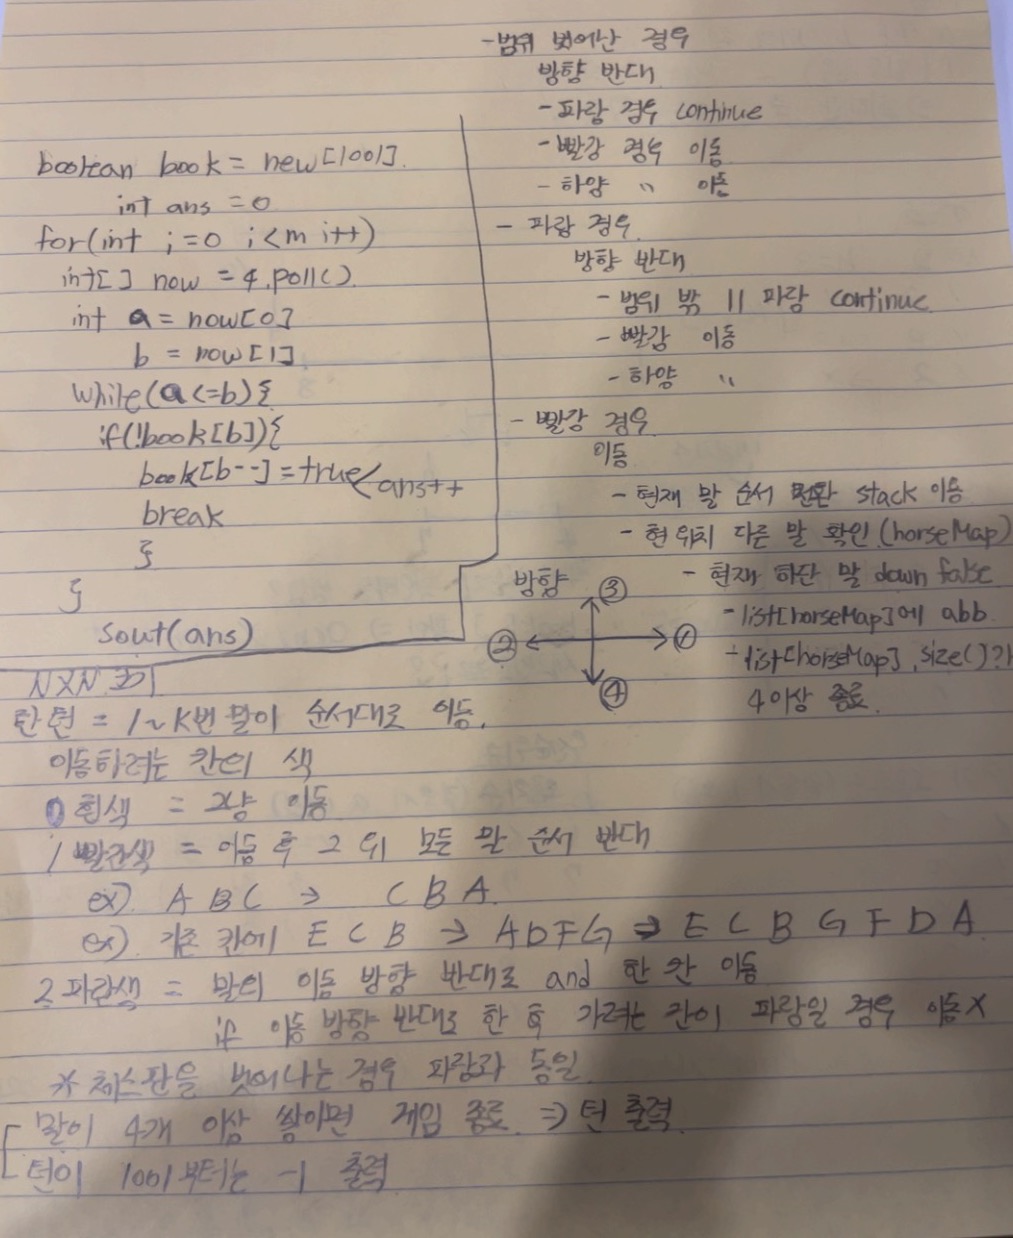 boolean book = new[1001].
int ans = 0
for(int i=0 i<m i++)
int[] now = q.poll()
int a = now[0]
b = now[1]
while(a<=b){
if(!book[b]){
book[b--]=true
ans++
break
}
}
sout(ans)
- 범위 벗어난 경우
방향 반대
- 파랑 경우 continue
- 빨강 경우 이동
- 하양 〃 이동
- 파랑 경우
방향 반대
- 범위 밖 || 파랑 continue
- 빨강 이동
- 하양 〃
- 빨강 경우
이동
- 현재 말 순서 stack 이동
- 현 위치 다른 말 확인 (horseMap)
- 현재 하단 말 down false
- list[horseMap]에 abb
- list[horseMap].size()가
4이상 종료.
방향
③
② ①
④
NXN
한 턴 = 1~K번 말이 순서대로 이동.
이동하려는 칸의 색
0 흰색 = 그냥 이동
1 빨간색 = 이동 후 그 위 모든 말 순서 반대
ex). A B C → C B A.
ex). 기존 칸에 E C B → A D F G ⇒ E C B G F D A
2 파란색 = 말의 이동 방향 반대로 and 한 칸 이동
if 이동 방향 반대로 한 후 가려는 칸이 파랑일 경우 이동X
* 체스판을 벗어나는 경우 파랑과 동일.
말이 4개 이상 쌓이면 게임 종료. ⇒ 턴 출력
턴이 1001부터는 -1 출력